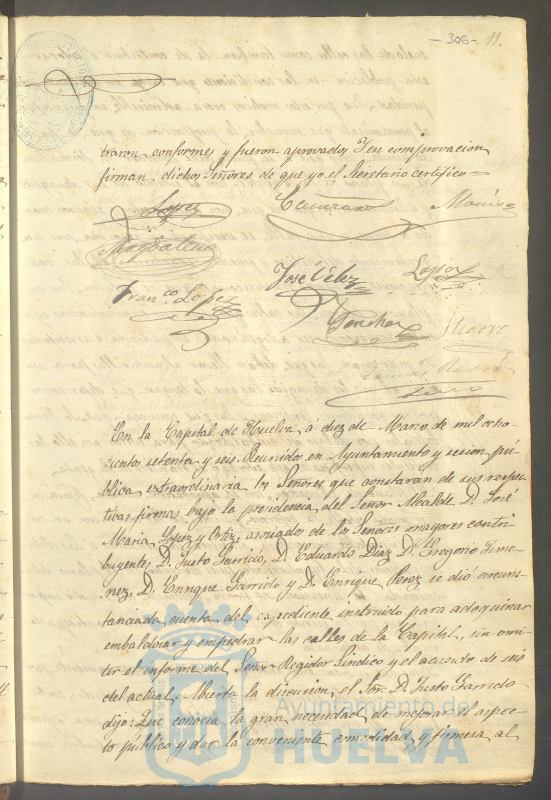 - 306 - 11.
traron conformes y fueron aprovados Y en comprovacion
firman dichos Señores de que yo el Secretario certifico=
Lopez
Magdalena
José Velez
Lopez
Fran.co Lopez
Sanchez
En la Capital de Huelva á diez de Marzo de mil ocho-
cientos setenta y seis Reunidos en Ayuntamiento y sesion pú-
blica extraordinaria los Señores que constaran de sus respec-
tivas firmas bajo la presidencia del Señor Alcalde D. José
Maria Lopez y Ortiz, asociados de los Señores mayores contri-
buyentes D. Justo Garrido, D. Eduardo Diaz D. Gregorio Jime-
nez, D. Enrique Garrido y D. Enrique Perez se dió circuns-
tanciada cuenta del expediente instruido para adoquinar
embaldosar y empedrar las calles de la Capital, sin omi-
tir el informe del Señor Regidor Sindico y el acuerdo de seis
del actual. Abierta la discusion, el Sor. D. Justo Garrido
dijo: Que conocia la gran necesidad de mejorar el aspec-
to público y dar la conveniente comodidad y firmesa al
Ayuntamiento de
HUELVA